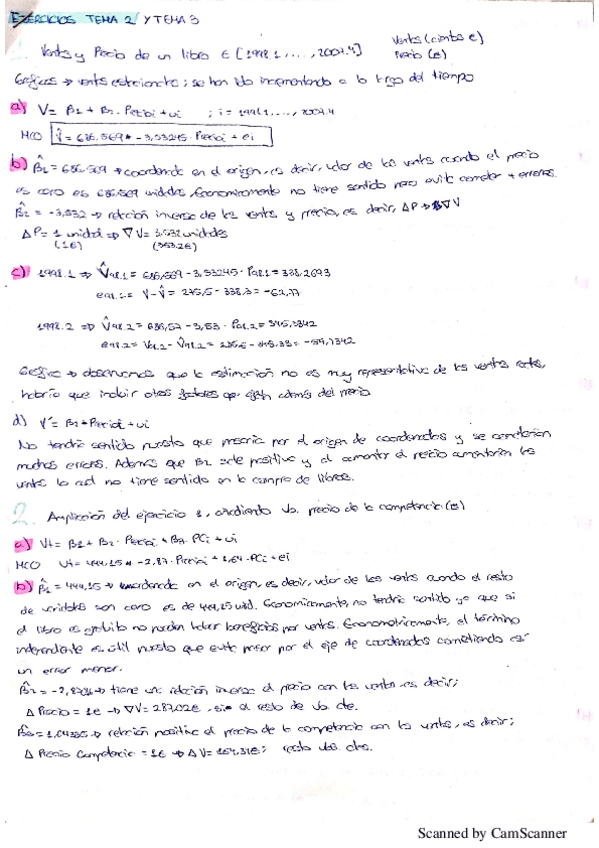 EJERCICIOS TEMA 2 Y TEMA 3
1. Ventas y Precio de un libro ∈ [1998.1, ..., 2004.4] Ventas (cientos €)
Precio (€)
Gráficos → ventas ; se han ido incrementando a lo largo del tiempo
a) V = β1 + β2 · Precioi + ui ; i = 1998.1, ..., 2004.4
MCO V̂ = 686.569 - 3,53245 · Precioi + ei
b) β̂1 = 686.569 → coordenada en el origen, es decir, valor de las ventas cuando el precio
es cero es 686.569 unidades. Económicamente no tiene sentido pero evita cometer + errores.
β̂2 = -3,532 → relación inversa de las ventas y precio, es decir, ΔP → ∇V
ΔP = 1 unidad ⇒ ∇V = 3.532 unidades
(1€) (353.2€)
c) 1998.1 ⇒ V̂98.1 = 686,569 - 3,53245 · P98.1 = 338,2693
e98.1 = V - V̂ = 275,5 - 338,3 = -62,77
1998.2 ⇒ V̂98.2 = 686,57 - 3,53 · P98.2 = 345,3342
e98.2 = V98.2 - V̂98.2 = - 345,33 =
Gráfico → observamos que la estimación no es muy representativa de las ventas reales,
habría que incluir otros factores que además del precio
d) V = β2 · Precioi + ui
No tendría sentido puesto que pasaría por el origen de coordenadas y se cometerían
muchos errores. Además que β2 sale positivo y al aumentar el precio aumentarían las
ventas lo cual no tiene sentido en la compra de libros.
2. Ampliación del ejercicio 1, añadiendo Vb. precio de la competencia (€)
a) Vt = β1 + β2 · Precioi + β3 · PCi + ui
MCO Vt = 444,15 - 2,87 · Precioi + 1,64 · PCi + ei
b) β̂1 = 444,15 → coordenada en el origen, es decir, valor de las ventas cuando el resto
de variables son cero es de 444,15 uid. Económicamente, no tendría sentido ya que si
el libro es gratuito no pueden haber beneficios por ventas. Econométricamente, el término
independiente es útil puesto que evita pasar por el eje de coordenadas cometiendo así
un error menor.
β̂2 = → tiene una relación inversa el precio con las ventas, es decir;
Δ Precio = 1€ ⇒ ∇V = 287,02€, el resto de vb. cte.
β̂3 = → relación positiva el precio de la competencia con las ventas, es decir;
Δ Precio Competencia = 1€ ⇒ ΔV = ; resto vbs. ctes.
Scanned by CamScanner